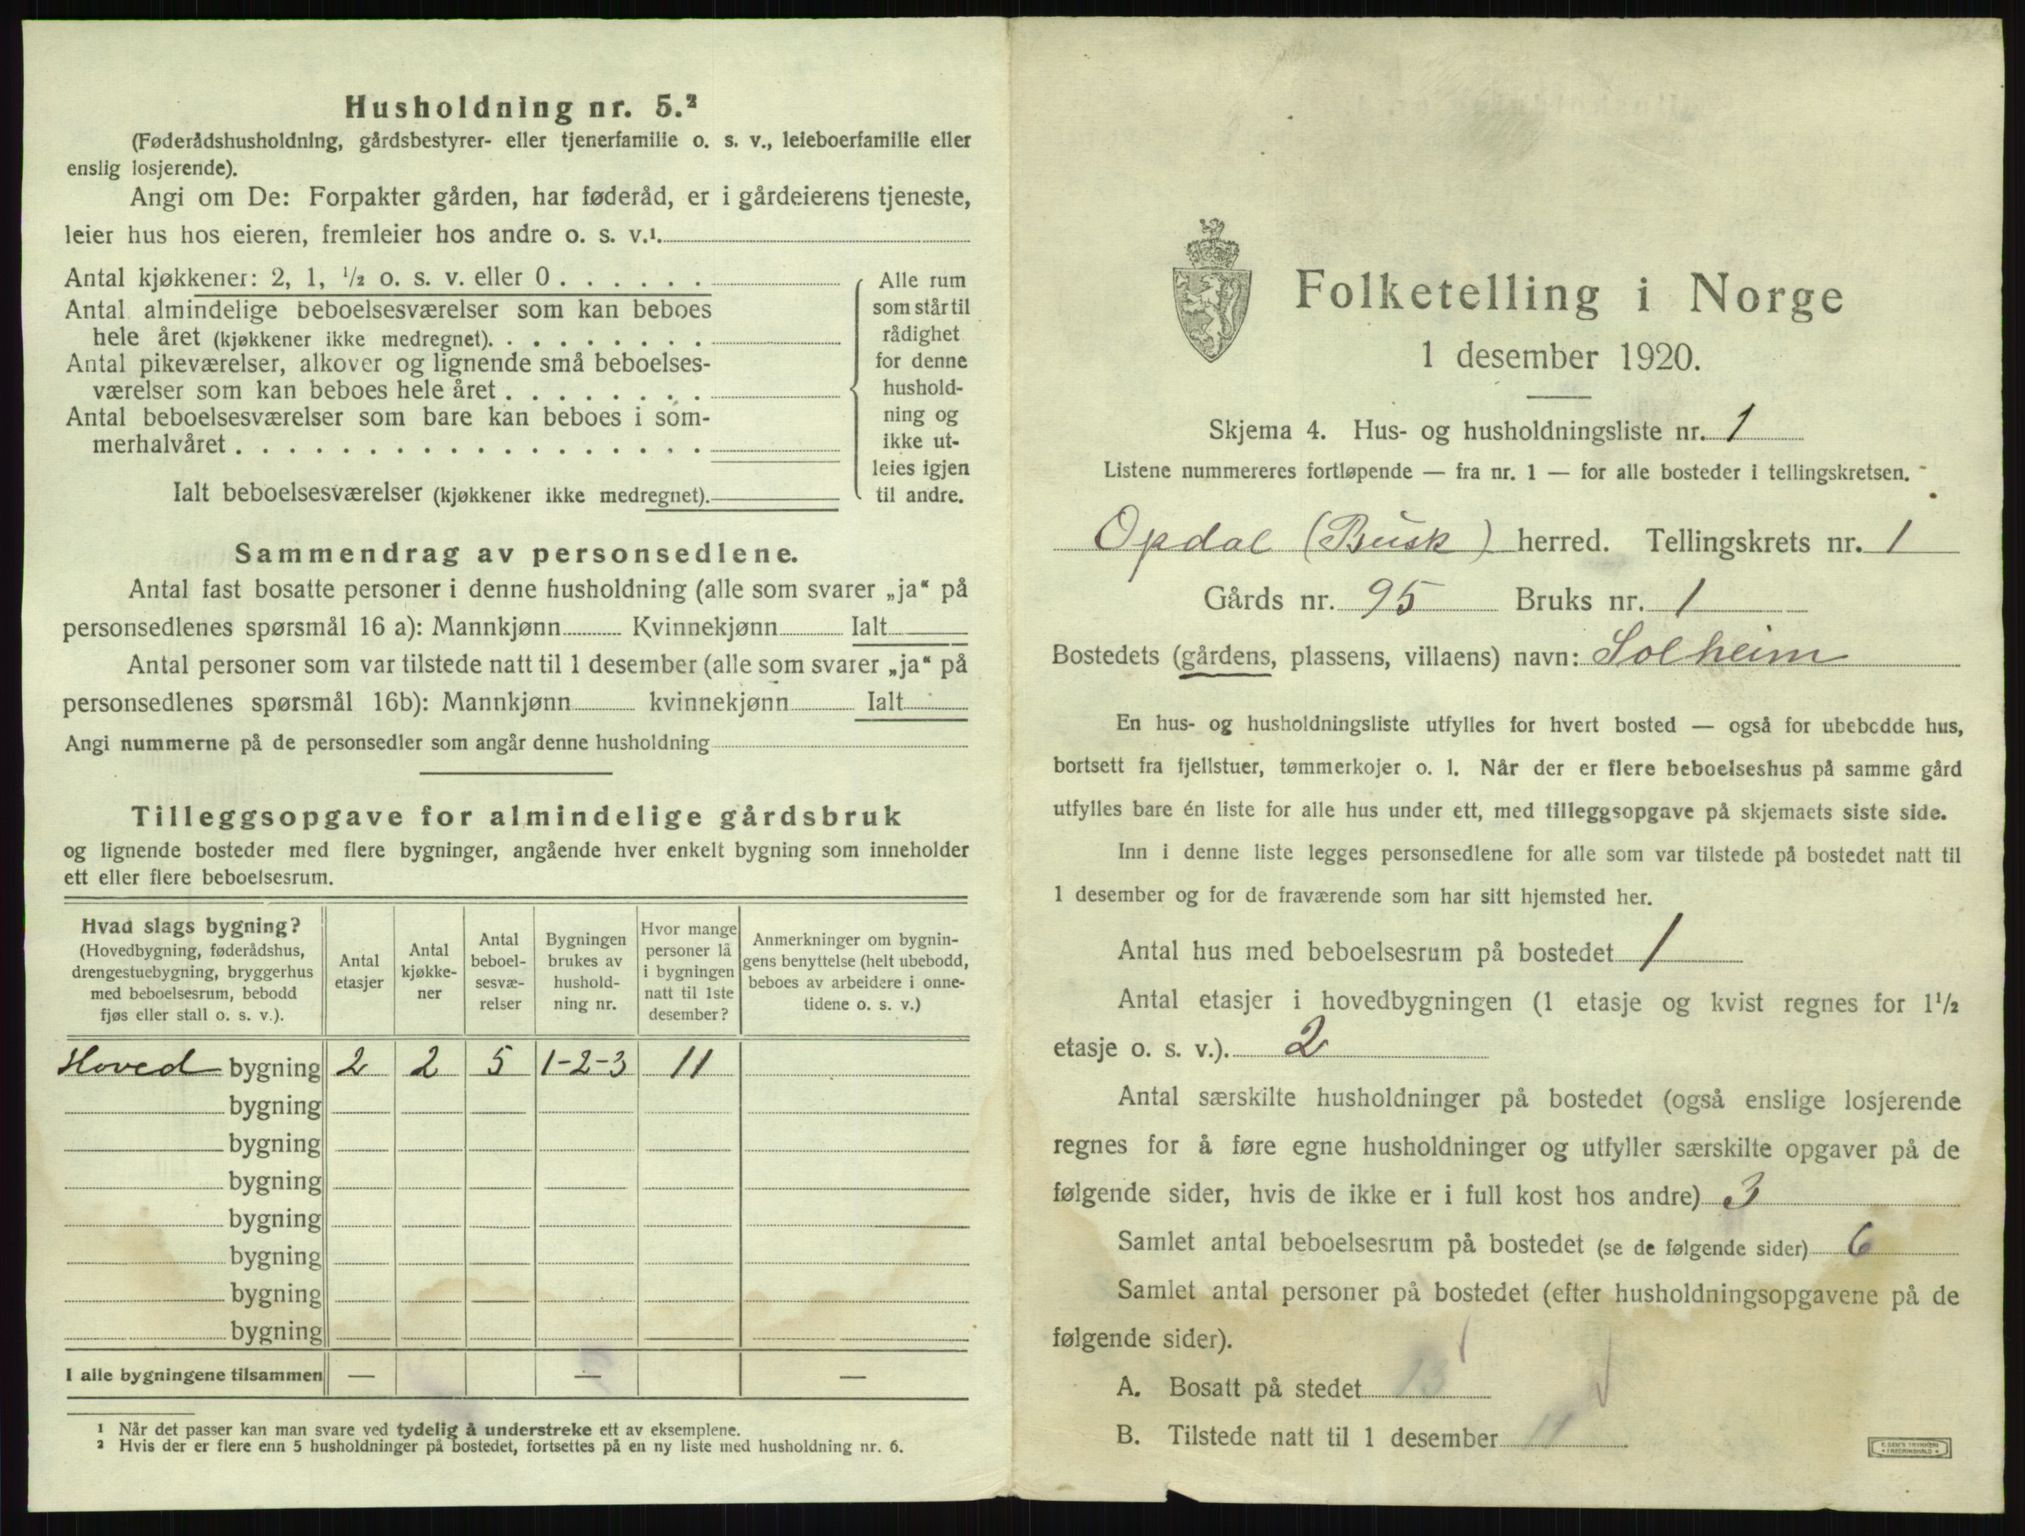 Husholdning nr. 5.²
(Føderådshusholdning, gårdsbestyrer- eller tjenerfamilie o. s. v., leieboerfamilie eller
enslig losjerende).
Angi om De: Forpakter gården, har føderåd, er i gårdeierens tjeneste,
leier hus hos eieren, fremleier hos andre o. s. v.¹
Antal kjøkkener: 2, 1, ½ o. s. v. eller 0 . . . . . .
Antal almindelige beboelsesværelser som kan beboes
hele året (kjøkkener ikke medregnet). . . . . . . . .
Antal pikeværelser, alkover og lignende små beboelses-
værelser som kan beboes hele året . . . . . . . .
Antal beboelsesværelser som bare kan beboes i som-
merhalvåret . . . . . . . . . . . . . . . . . .
Ialt beboelsesværelser (kjøkkener ikke medregnet).
Alle rum
som står til
rådighet
for denne
hushold-
ning og
ikke ut-
leies igjen
til andre.
Sammendrag av personsedlene.
Antal fast bosatte personer i denne husholdning (alle som svarer „ja“ på
personsedlenes spørsmål 16 a): Mannkjønn Kvinnekjønn Ialt
Antal personer som var tilstede natt til 1 desember (alle som svarer „ja“ på
personsedlenes spørsmål 16b): Mannkjønn kvinnekjønn Ialt
Angi nummerne på de personsedler som angår denne husholdning
Tilleggsopgave for almindelige gårdsbruk
og lignende bosteder med flere bygninger, angående hver enkelt bygning som inneholder
ett eller flere beboelsesrum.
Hvad slags bygning?
(Hovedbygning, føderådshus,
drengestuebygning, bryggerhus
med beboelsesrum, bebodd
fjøs eller stall o. s. v.).
Antal
etasjer
Antal
kjøkke-
ner
Antal
beboel-
sesvæ-
relser
Bygningen
brukes av
hushold-
ning nr.
Hvor mange
personer lå
i bygningen
natt til 1ste
desember?
Anmerkninger om bygnin-
gens benyttelse (helt ubebodd,
beboes av arbeidere i onne-
tidene o. s. v.)
Hoved bygning 2 2 5 1-2-3 11
bygning
bygning
bygning
bygning
bygning
bygning
bygning
I alle bygningene tilsammen — — —
¹ Når det passer kan man svare ved tydelig å understreke ett av eksemplene.
² Hvis der er flere enn 5 husholdninger på bostedet, fortsettes på en ny liste med husholdning nr. 6.
Folketelling i Norge
1 desember 1920.
Skjema 4. Hus- og husholdningsliste nr. 1
Listene nummereres fortløpende — fra nr. 1 — for alle bosteder i tellingskretsen.
Opdal (Busk) herred. Tellingskrets nr. 1
Gårds nr. 95 Bruks nr. 1
Bostedets (gårdens, plassens, villaens) navn: Solheim
En hus- og husholdningsliste utfylles for hvert bosted — også for ubebodde hus,
bortsett fra fjellstuer, tømmerkojer o. l. Når der er flere beboelseshus på samme gård
utfylles bare én liste for alle hus under ett, med tilleggsopgave på skjemaets siste side.
Inn i denne liste legges personsedlene for alle som var tilstede på bostedet natt til
1 desember og for de fraværende som har sitt hjemsted her.
Antal hus med beboelsesrum på bostedet 1
Antal etasjer i hovedbygningen (1 etasje og kvist regnes for 1½
etasje o. s. v.). 2
Antal særskilte husholdninger på bostedet (også enslige losjerende
regnes for å føre egne husholdninger og utfyller særskilte opgaver på de
følgende sider, hvis de ikke er i full kost hos andre) 3
Samlet antal beboelsesrum på bostedet (se de følgende sider) 6
Samlet antal personer på bostedet (efter husholdningsopgavene på de
følgende sider).
A. Bosatt på stedet 13
B. Tilstede natt til 1 desember 11